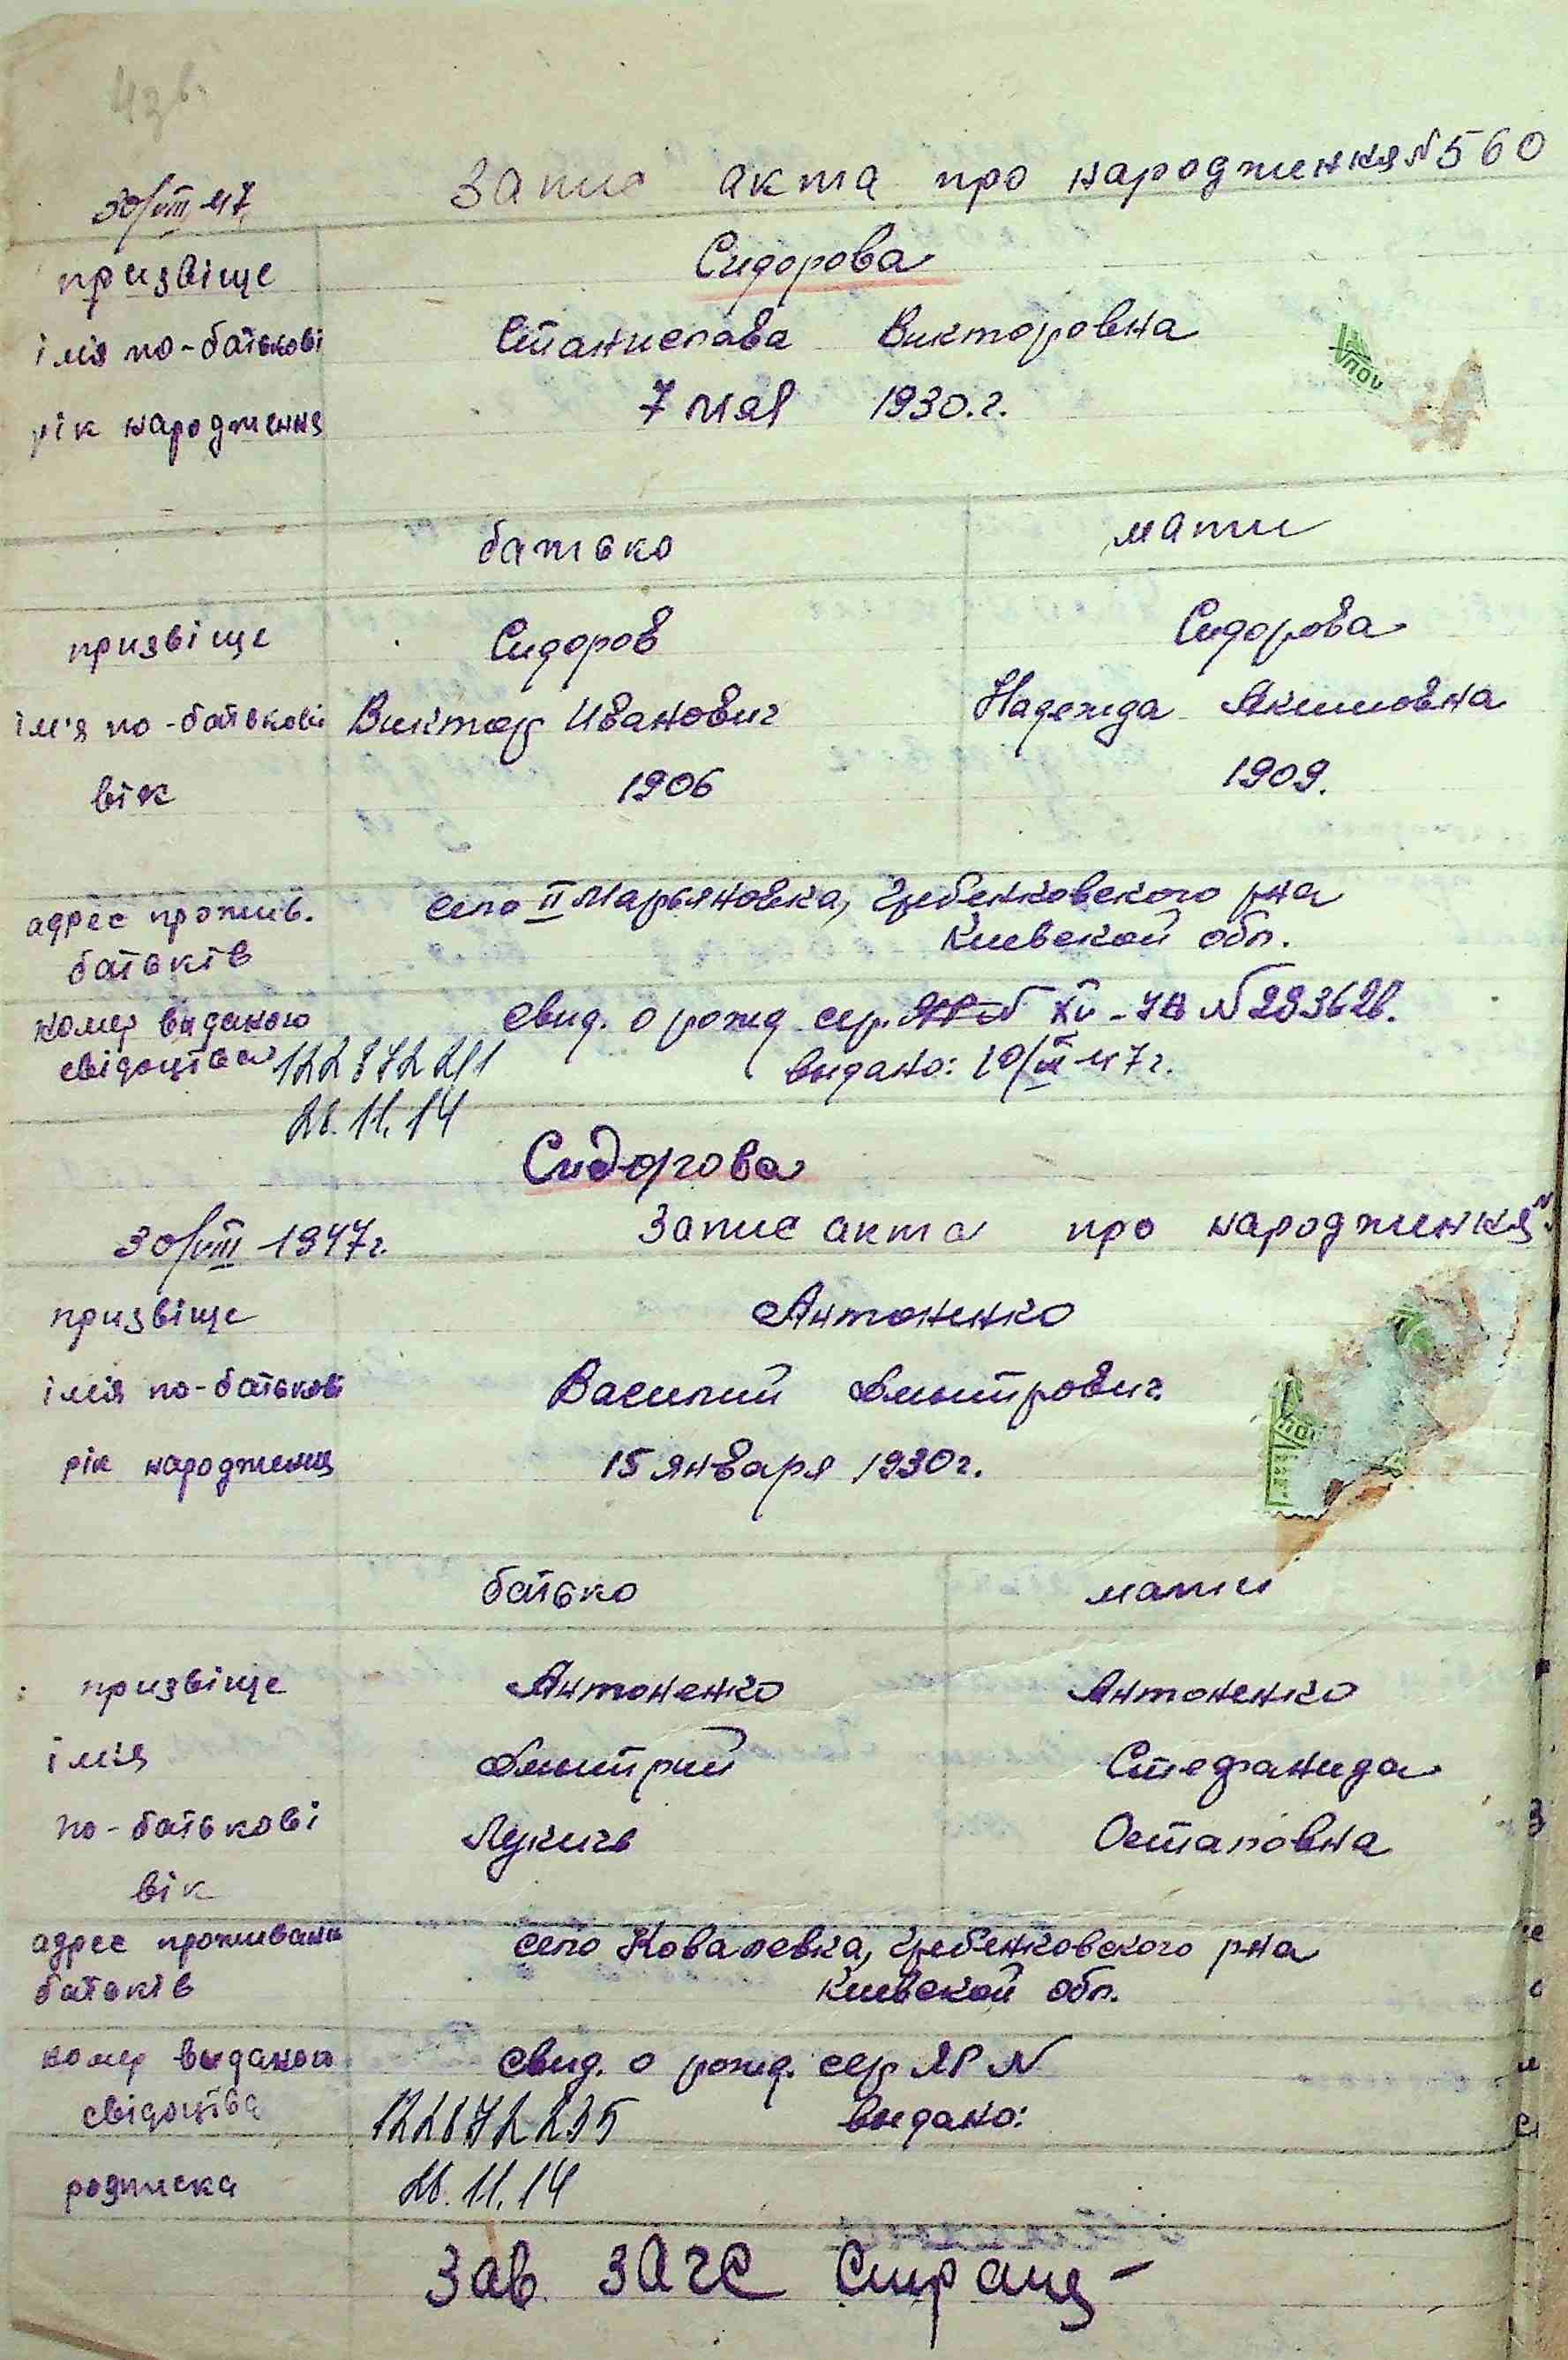 43 в.
30/VIII 47 Запис акта про народження № 560
призвіще Сидорова
імя по-батькові Станислава Викторовна
рік народження 7 мая 1930.г.
батько мати
призвіще Сидоров Сидорова
ім'я по-батькові Виктор Иванович Надежда Акимовна
вік 1906 1909.
адрес прожив. село II Марьяновка, Гребенковского рна
батьків Киевской обл.
номер виданого свид. о рожд сер.
свідоцтва выдано:
28.11.14
Сидорова
30/VIII 1947г. Запис акта про народження №
призвіще Антоненко
імія по-батькові Василий Дмитрович
рік народження 15 января 1930г.
батько мати
призвіще Антоненко Антоненко
імія Дмитрий Стефанида
по-батькові Лукичь Остаповна
вік
адрес проживання село Ковалевка, Гребенковского рна
батьків Киевской обл.
номер выданого свид. о рожд. сер ЯР N
свідоцтва выдано:
розписка 28.11.14
Зав. ЗАГС